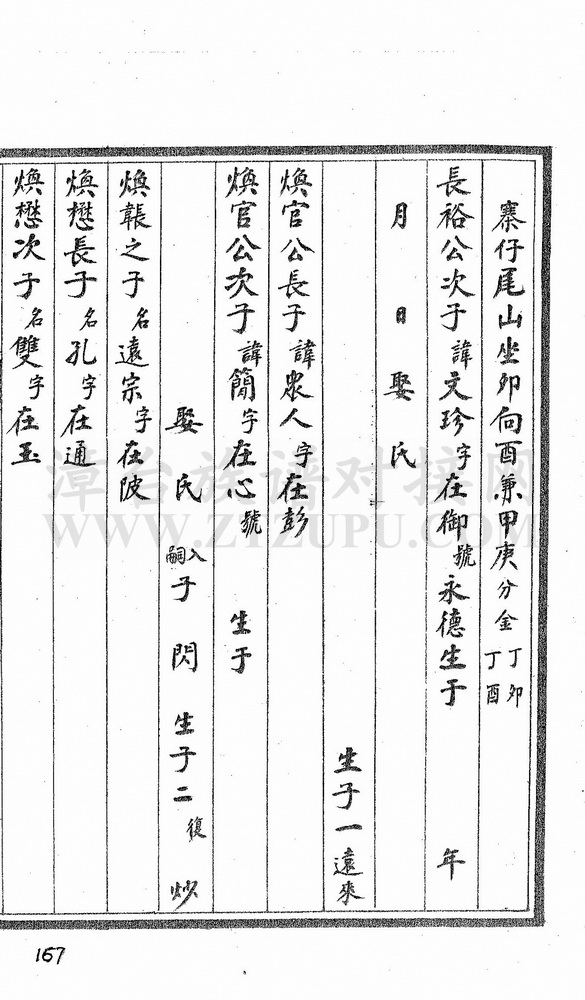 寨仔尾山坐卯向酉兼甲庚分金丁卯丁酉
長裕公次子諱文珍字在御號永德生于 年
月 日 娶 氏
生子一遠來
煥官公長子諱眾人字在彭
煥官公次子諱簡字在心號 生于
娶 氏 入嗣子 閃 生子二 復 炒
煥張之子名遠宗字在陂
煥懋長子名孔字在通
煥懋次子名雙字在玉
漳台族谱对接网
WWW.ZTZUPU.COM
167